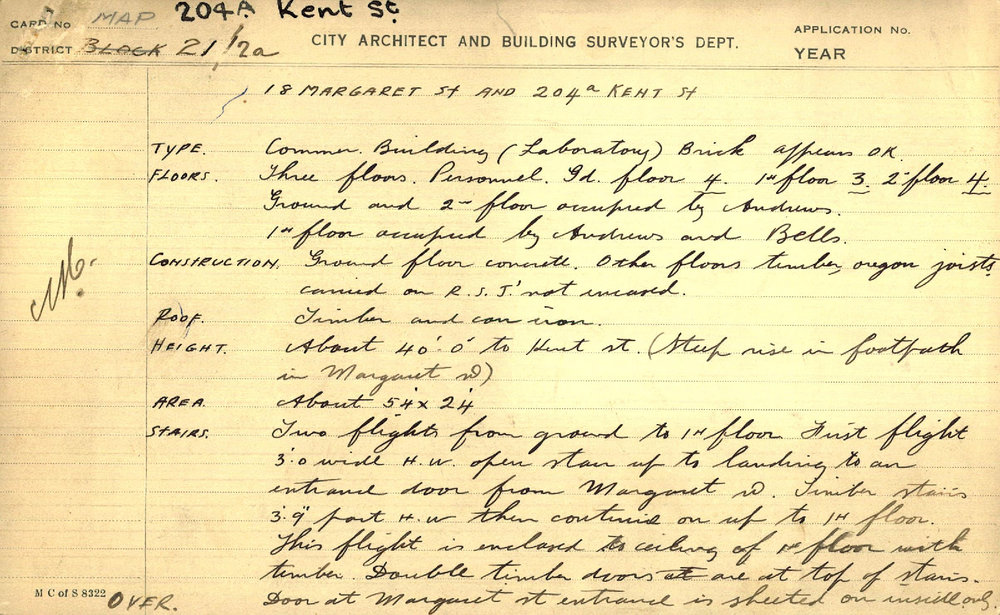 204A Kent St
CARD No MAP
DISTRICT BLOCK 21 1/2a
CITY ARCHITECT AND BUILDING SURVEYOR'S DEPT.
APPLICATION No.
YEAR
18 MARGARET St AND 204a KENT St
TYPE. Commer. Building (Laboratory) Brick appears OK.
FLOORS. Three floors. Personnel. Gd. floor 4. 1st floor 3. 2nd floor 4.
Ground and 2nd floor occupied by Andrews.
1st floor occupied by Andrews and Bells.
CONSTRUCTION. Ground floor concrete. Other floors timber, oregon joists,
carried on R.S.J.' not incased.
ROOF. Timber and corr iron.
HEIGHT. About 40'.0" to Kent st. (Steep rise in footpath
in Margaret st)
AREA. About 54' x 24'
STAIRS. Two flights from ground to 1st floor First flight
3'.0 wide H.W. open stair up to landing to an
entrance door from Margaret st. Timber stairs
3'.9" part H.W then continued on up to 1st floor.
This flight is enclosed to ceiling of 1st floor with
timber. Double timber doors at are at top of stairs.
Door at Margaret st entrance is sheeted on inside only.
M C of S 8322 OVER.